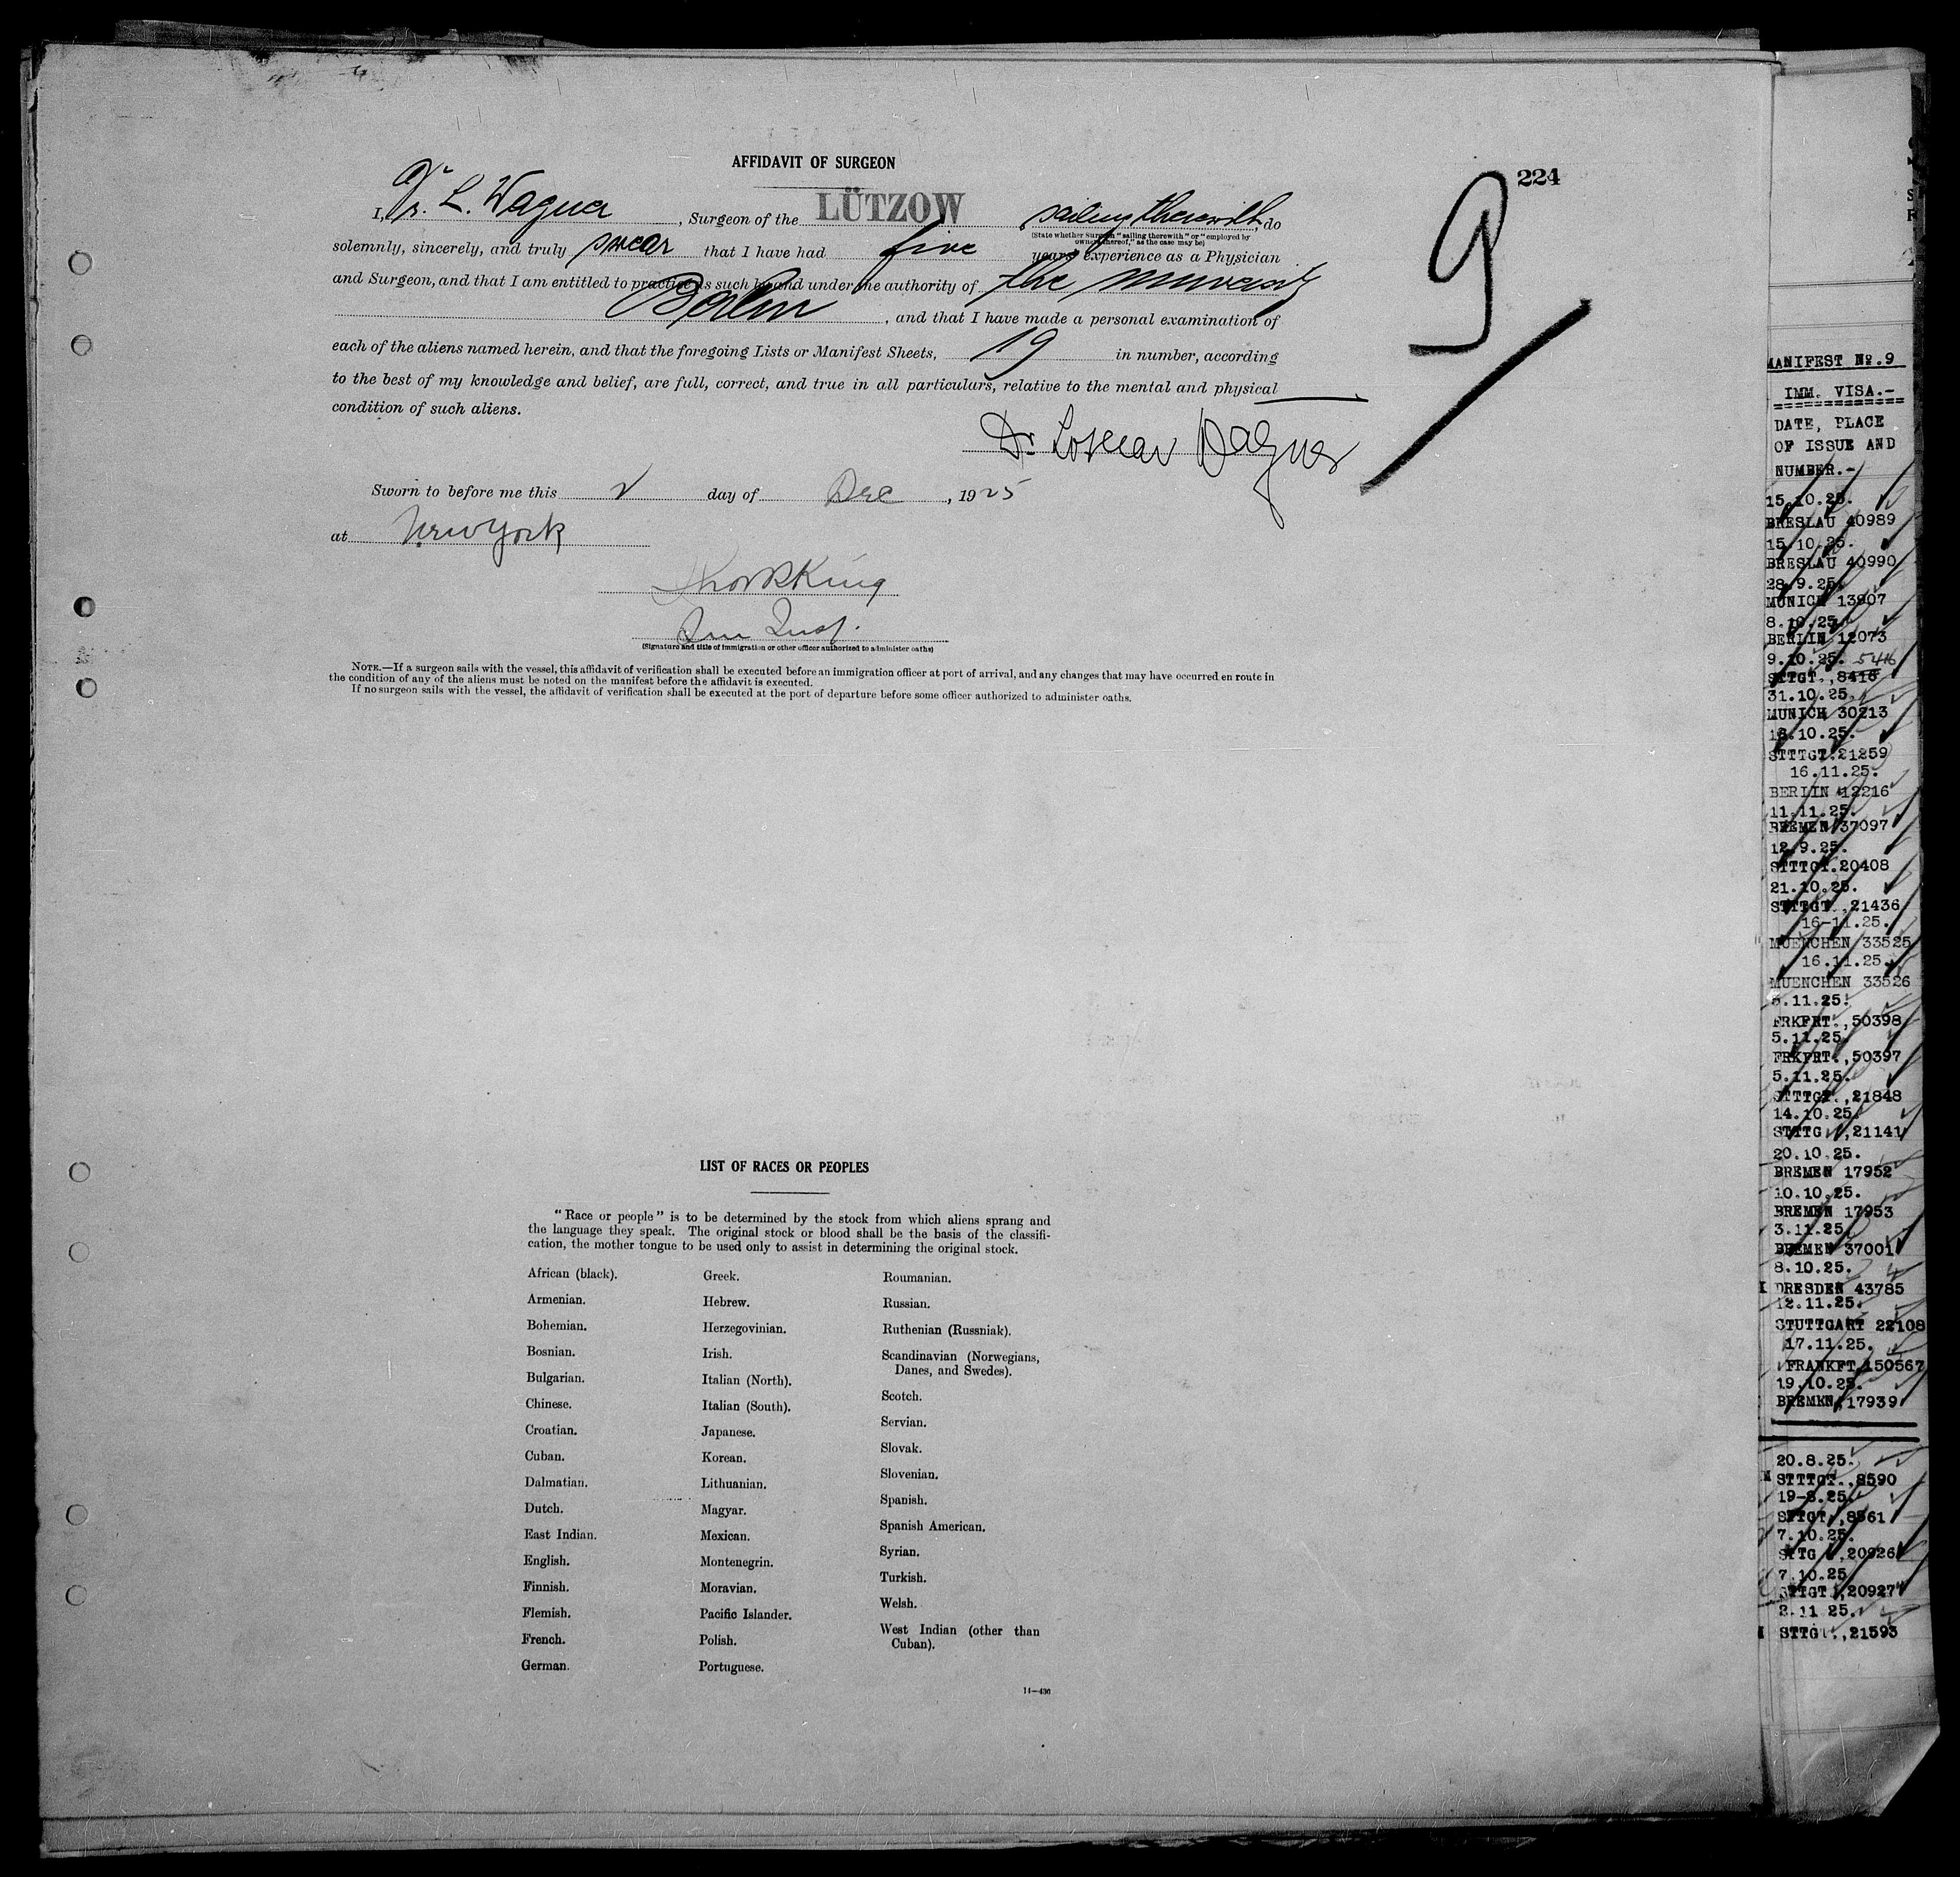 AFFIDAVIT OF SURGEON
224
9
I, Dr. L. Wagner, Surgeon of the LÜTZOW sailing therewith, do
(State whether surgeon "sailing therewith" or "employed by
owners thereof," as the case may be)
solemnly, sincerely, and truly swear that I have had five years' experience as a Physician
and Surgeon, and that I am entitled to practice as such by and under the authority of the university
Berlin, and that I have made a personal examination of
each of the aliens named herein, and that the foregoing Lists or Manifest Sheets, 19 in number, according
to the best of my knowledge and belief, are full, correct, and true in all particulars, relative to the mental and physical
condition of such aliens.
Dr. Lothar Wagner
Sworn to before me this 2 day of Dec, 1925
at New York
King
Imm Insp.
(Signature and title of immigration or other officer authorized to administer oaths)
NOTE.—If a surgeon sails with the vessel, this affidavit of verification shall be executed before an immigration officer at port of arrival, and any changes that may have occurred en route in
the condition of any of the aliens must be noted on the manifest before the affidavit is executed.
If no surgeon sails with the vessel, the affidavit of verification shall be executed at the port of departure before some officer authorized to administer oaths.
LIST OF RACES OR PEOPLES
"Race or people" is to be determined by the stock from which aliens sprang and
the language they speak. The original stock or blood shall be the basis of the classifi-
cation, the mother tongue to be used only to assist in determining the original stock.
African (black).
Armenian.
Bohemian.
Bosnian.
Bulgarian.
Chinese.
Croatian.
Cuban.
Dalmatian.
Dutch.
East Indian.
English.
Finnish.
Flemish.
French.
German.
Greek.
Hebrew.
Herzegovinian.
Irish.
Italian (North).
Italian (South).
Japanese.
Korean.
Lithuanian.
Magyar.
Mexican.
Montenegrin.
Moravian.
Pacific Islander.
Polish.
Portuguese.
Roumanian.
Russian.
Ruthenian (Russniak).
Scandinavian (Norwegians,
Danes, and Swedes).
Scotch.
Servian.
Slovak.
Slovenian.
Spanish.
Spanish American.
Syrian.
Turkish.
Welsh.
West Indian (other than
Cuban).
14—436
MANIFEST No.9
IMM. VISA.-
DATE, PLACE
OF ISSUE AND
NUMBER.-
15.10.25.
BRESLAU 40989
15.10.25.
BRESLAU 40990
28.9.25.
MUNICH 13907
8.10.25.
BERLIN 12073
9.10.25. 5416
STTGT.,8416
31.10.25.
MUNICH 30213
16.10.25.
STTTGT.21259
16.11.25.
BERLIN 12216
11.11.25.
BREMEN 37097
12.9.25.
STTTGT.20408
21.10.25.
STTTGT.,21436
16-11.25.
MUENCHEN 33525
16.11.25.
MUENCHEN 33526
5.11.25.
FRKFRT.,50398
5.11.25.
FRKFRT.,50397
5.11.25.
STTTGT.,21848
14.10.25.
STTTG.,21141
20.10.25.
BREMEN 17952
10.10.25.
BREMEN 17953
3.11.25.
BREMEN 37001
8.10.25.
DRESDEN 43785
12.11.25.
STUTTGART 22108
17.11.25.
FRANKFT 150567
19.10.25.
BREMEN,17939
20.8.25.
STTTGT.,8590
19-8.25.
STTGT.,8561
7.10.25.
STTG.,20926
7.10.25
STTGT.,20927
2.11 25.
STTG.,21593